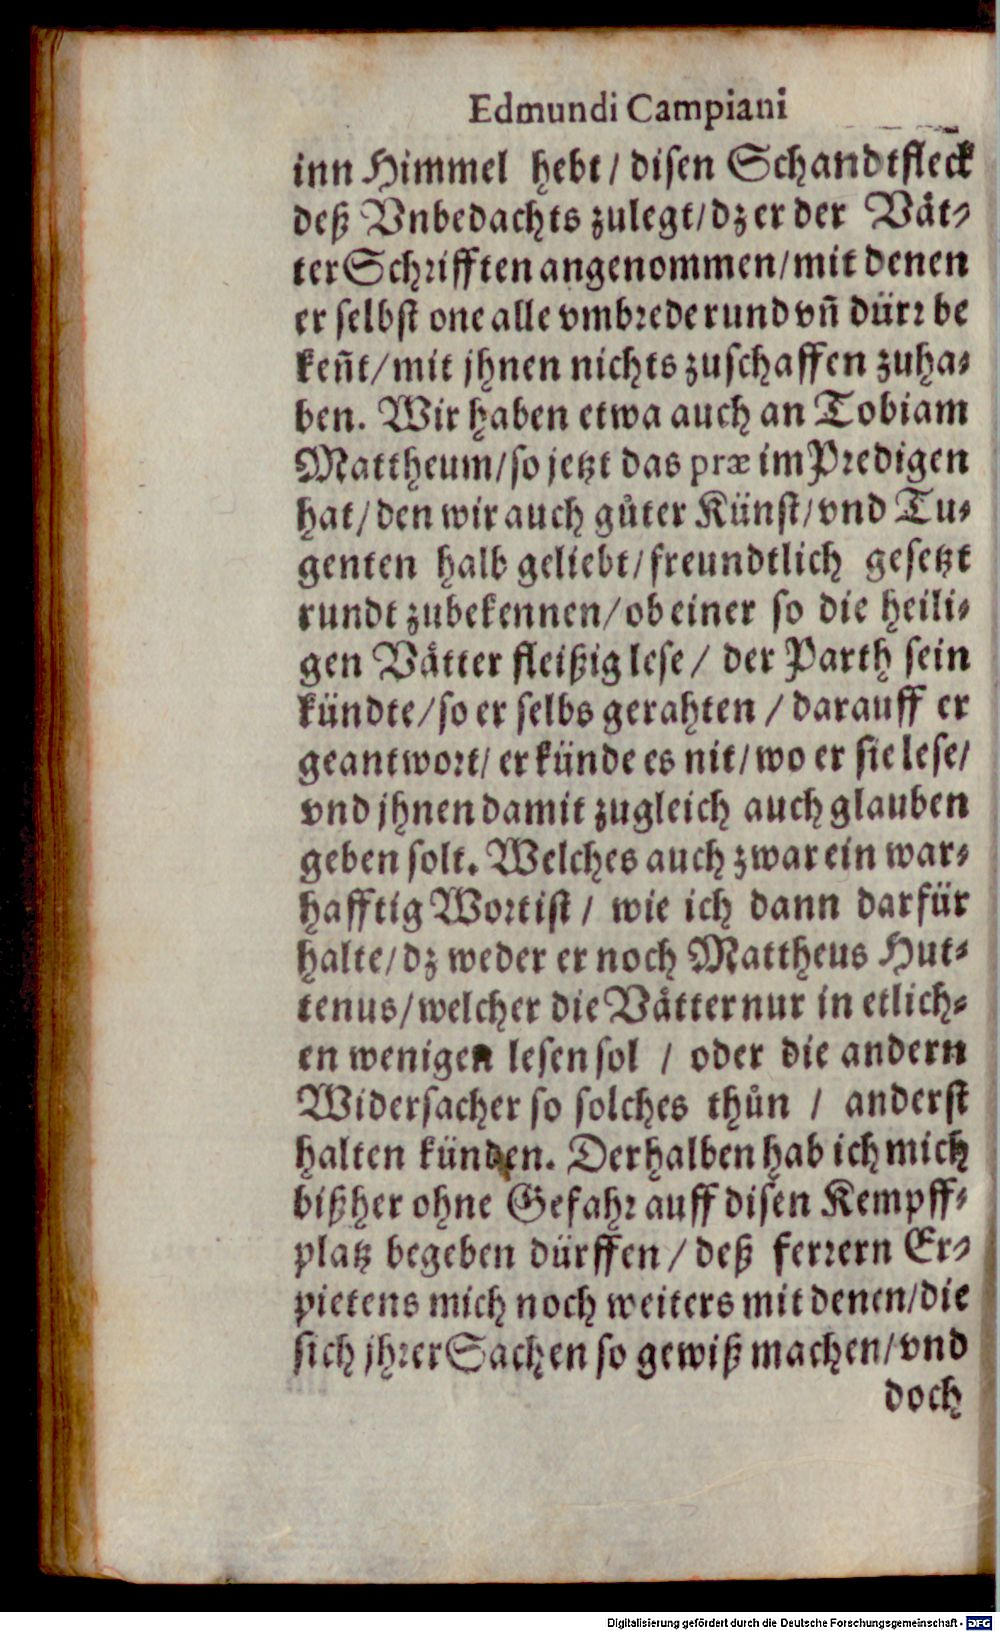 Edmundi Campiani
inn Himmel hebt / disen Schandtfleck
deß Vnbedachts zulegt / dz er der Vät⸗
ter Schrifften angenommen / mit denen
er selbst one alle vmbrede rund vñ dürr be
keñt / mit jhnen nichts zuschaffen zuha⸗
ben. Wir haben etwa auch an Tobiam
Mattheum / so jetzt das præ im Predigen
hat / den wir auch gůter Künst / vnd Tu⸗
genten halb geliebt / freundtlich gesetzt
rundt zubekennen / ob einer so die heili⸗
gen Vätter fleißig lese / der Parth sein
kündte / so er selbs gerahten / darauff er
geantwort / er künde es nit / wo er sie lese /
vnd jhnen damit zugleich auch glauben
geben solt. Welches auch zwar ein war⸗
hafftig Wort ist / wie ich dann darfür
halte / dz weder er noch Mattheus Hut⸗
tenus / welcher die Vätter nur in etlich⸗
en wenigen lesen sol / oder die andern
Widersacher so solches thůn / anderst
halten künden. Derhalben hab ich mich
bißher ohne Gefahr auff disen Kempff⸗
platz begeben dürffen / deß ferrern Er⸗
pietens mich noch weiters mit denen / die
sich jhrer Sachen so gewiß machen / vnd
doch
Digitalisierung gefördert durch die Deutsche Forschungsgemeinschaft - DFG